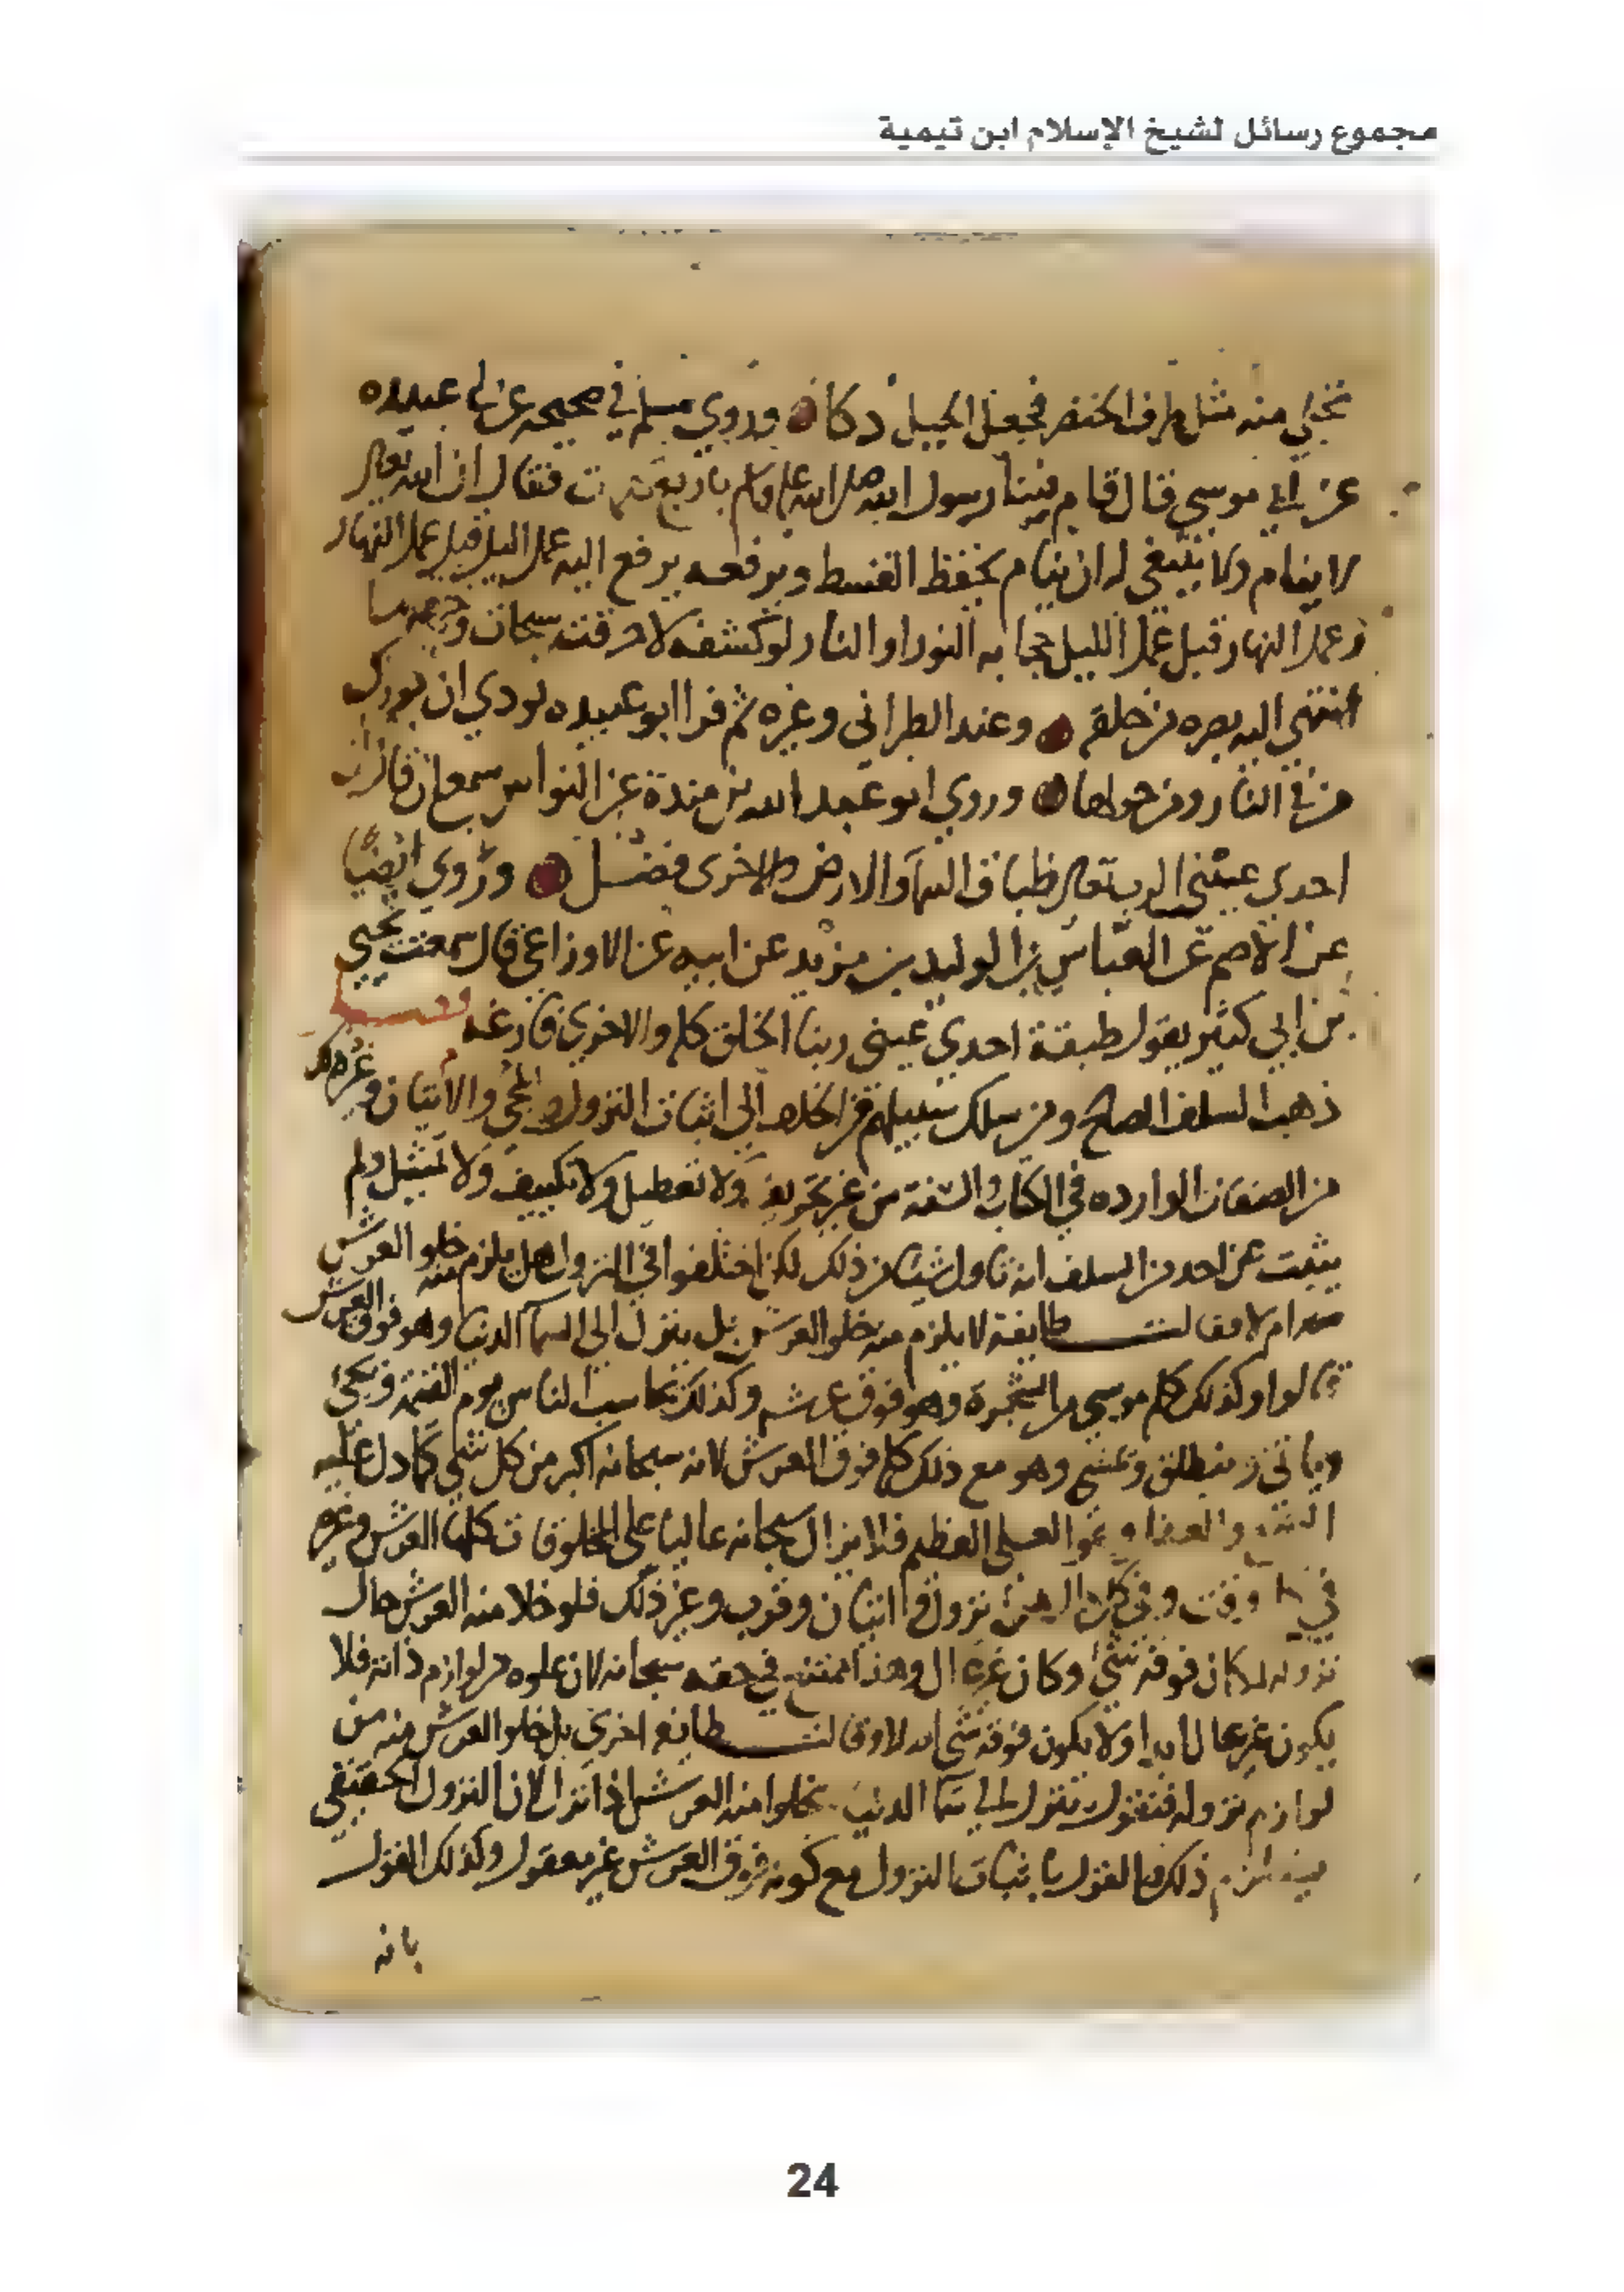 مجموع رسائل لشيخ الإسلام ابن تيمية
تجلي منه مثل طرف الخنصر فجعل الجبل دكا وروي مسلم في صحيحه عن ابي عبيده
عن ابي موسي قال قام فينا رسول الله صلى الله عليه وسلم باربع كلمات فقال ان الله تعالى
لا ينام ولا ينبغي له ان ينام يخفظ القسط ويرفعه يرفع اليه عمل اليل قبل عمل النهار
وعمل النهار قبل عمل الليل حجابه النور او النار لو كشفه لاحرقت سبحات وجهه ما
انتهي اليه بصره من خلقه وعند الطبراني وغيره ثم قرا ابو عبيده نودي ان بورك
من في النار ومن حولها وروي ابو عبد الله بن مندة عن النواس سمعان قال
احدي عيني الرب تعالى طباق السما والارض والاخرى فضل وروي ايضا
عن الاصم عن العباس بن الوليد بن مزيد عن ابيه عن الاوزاعي قال سمعت يحيي
بن ابي كثير يقول طبقة احدي عيني ربنا الخلق كله والاخري فارغه وقد
ذهب السلف الصالح ومن سلك سبيلهم من الخلف الي اثبات النزول والمجي والاتيان وغيرهم
من الصفات الوارده في الكتاب والسنة من غير تحريف ولا تعطيل ولا تكييف ولا تمثيل ولم
يثبت عن احد من السلف انه تاول شيئا من ذلك لكن اختلفوا في النزول هل يلزم منه خلو العرش
ام لا فقالت طايفة لا يلزم منه خلو العرش بل ينزل الي السما الدنيا وهو فوق العرش
قالوا وكذلك كلم موسي من الشجرة وهو فوق عرشه وكذلك يحاسب الناس يوم القيمة ويجئ
وياتي وينطلق وهو مع ذلك كله فوق العرش لانه سبحانه اكبر من كل شي كما دل عليه
وهو العلي العظيم فلا يزال سبحانه عاليا على المخلوقات كلها العرش وغيره
في كل وقت وفي كل حال من نزول واتيان وقرب وغير ذلك فلو خلا منه العرش حال
نزوله لكان فوقه شئ وكان غير عال وهذا ممتنع في حقه سبحانه لان علوه من لوازم ذاته فلا
يكون غير عال ابدا ولا يكون فوقه شي وقالت طايفه اخري بل خلو العرش منه من
لوازم نزوله فنقول ينزل الي سما الدنيا يخلوا منه العرش اذا نزل لان النزول الحقيقي
يستلزم ذلك والقول باثبات النزول مع كونه فوق العرش غير معقول وكذلك القول
بانه
24